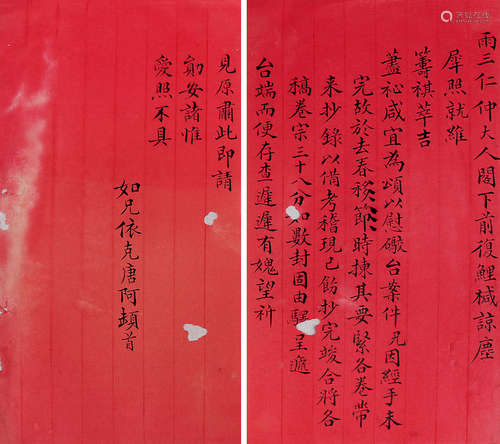 雨三仁仲大人閣下前復鯉械諒塵
犀照就維
籌祺萃吉
藎祉咸宜為頌以慰礮台案件兄因經手未
完故於去春移節時揀其要緊各卷帶
來抄錄以備考稽現已飭抄完竣合將各
稿卷宗三十八分如數封固由驛呈遞
台端而便存查遲遲有媿望祈
見原肅此即請
勛安諸惟
愛照不具
如兄依克唐阿頓首